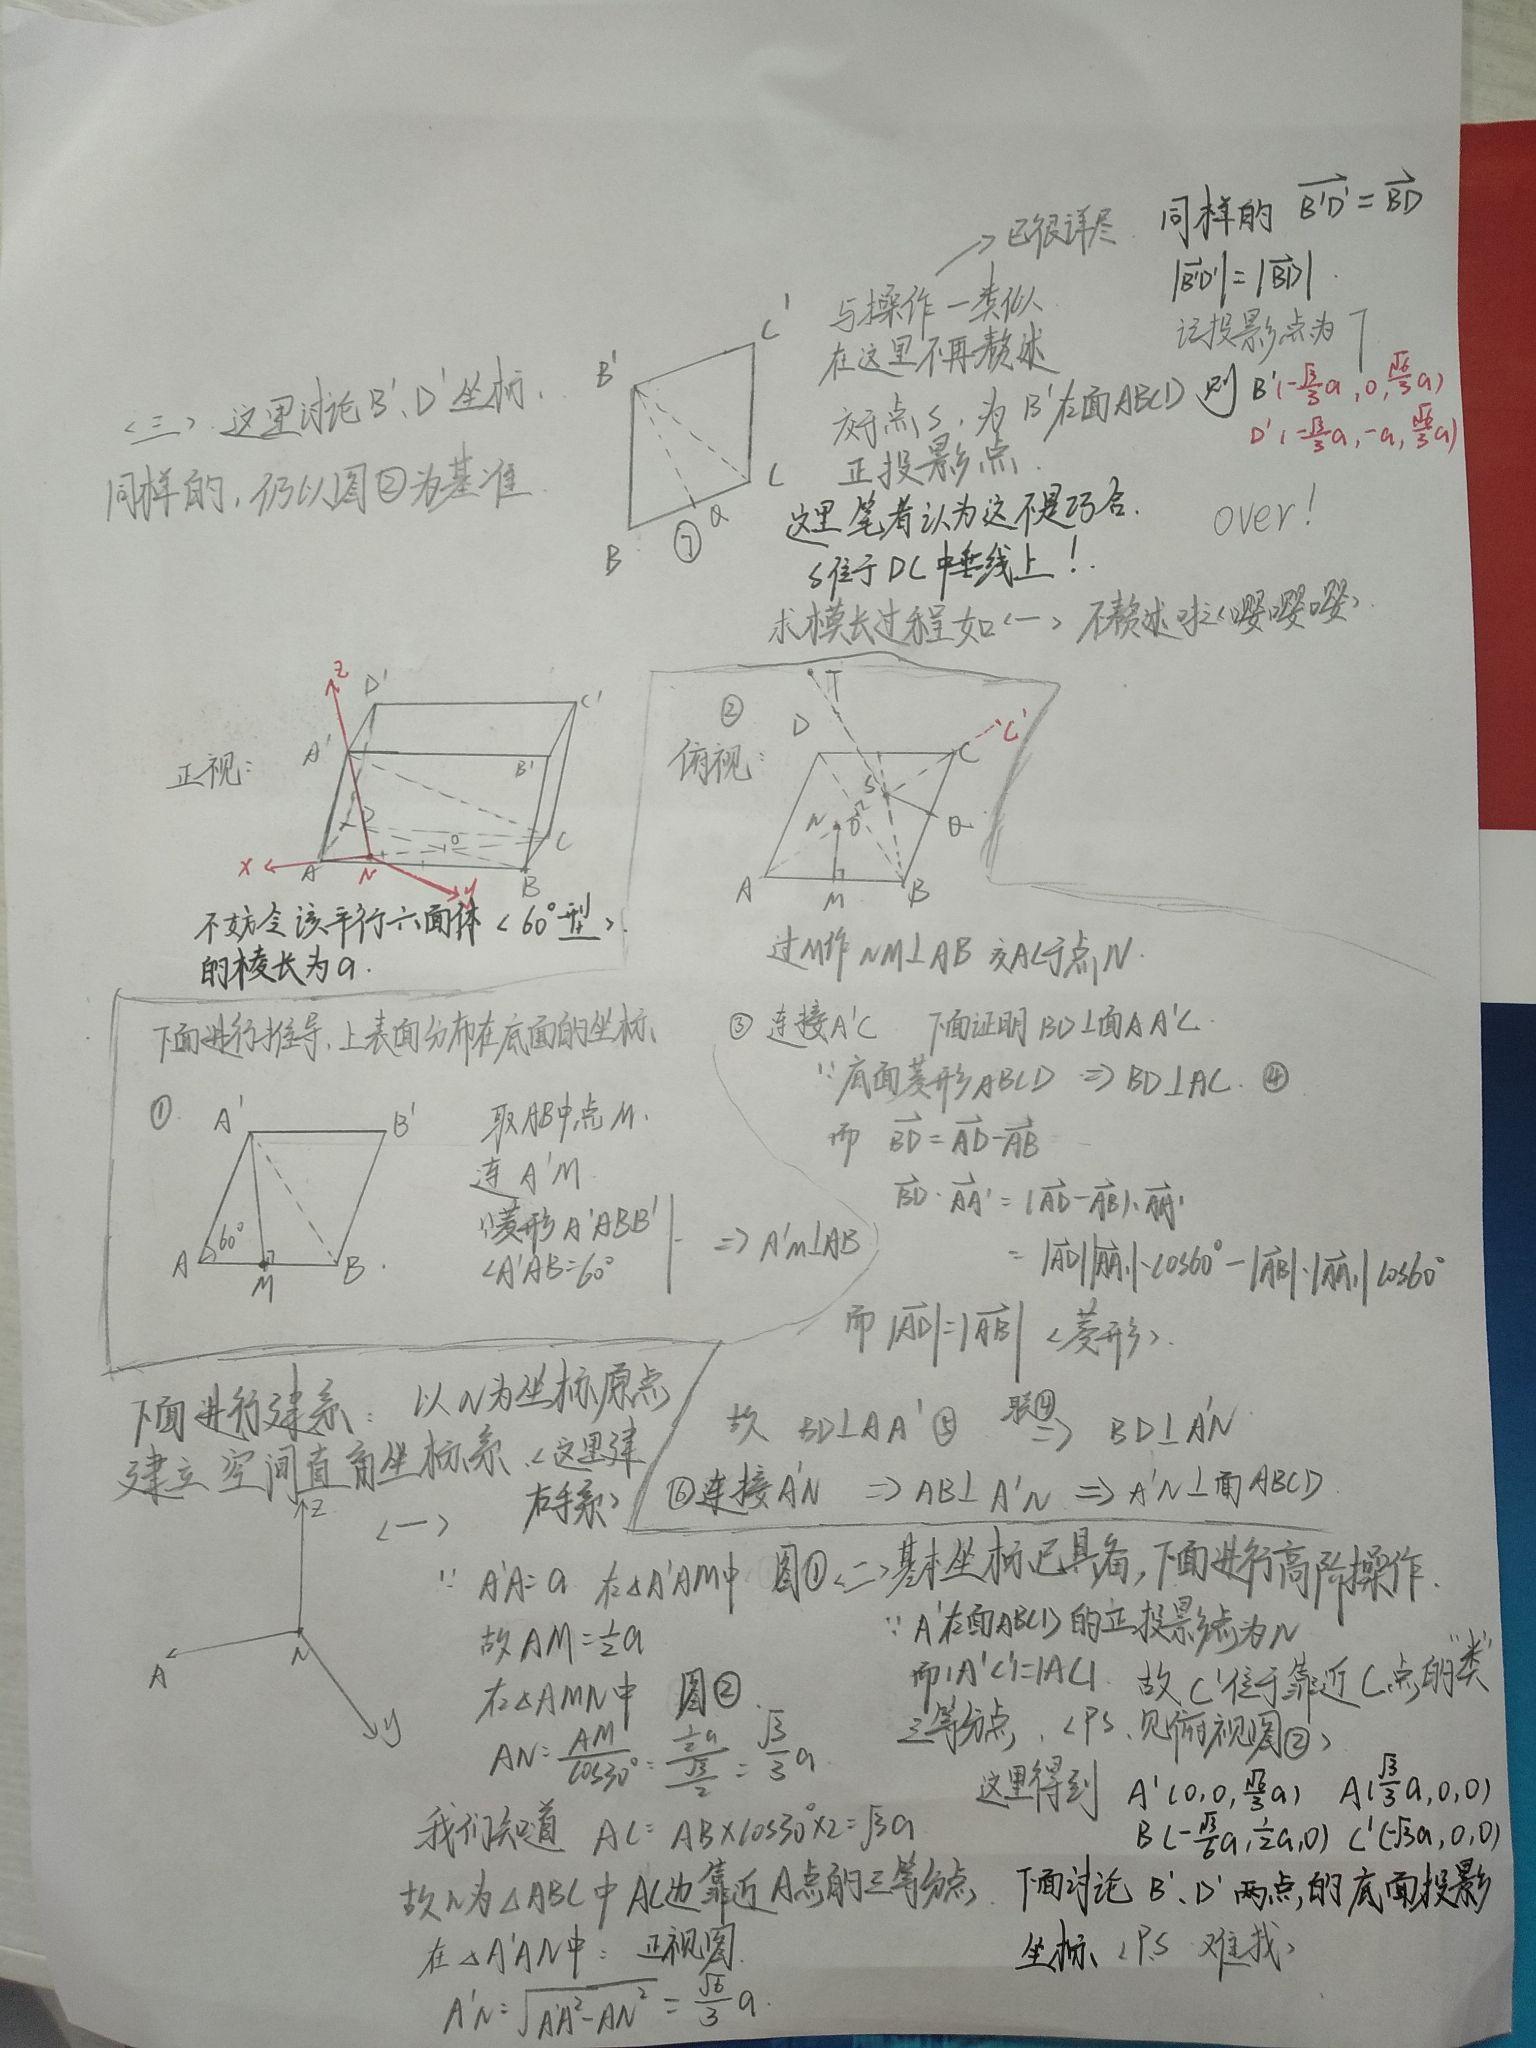 同样的 B'D' = BD
→已很详尽
|B'D'| = |BD|
与操作一类似
记投影点为T
在这里不再赘述
交于点S,为B'在面ABCD
正投影点.
则 B'(-√3/3 a, 0, √6/3 a)
D'(-√3/3 a, -a, √6/3 a)
这里笔者认为这不是巧合.
S位于DC中垂线上!
over!
求模长过程如<一> 不赘述啦<嘤嘤嘤>.
<三>.这里讨论B'、D'坐标.
同样的,仍以图②为基准
B' C' B Q C
⑦
正视:
Z D' C' A' B' D O C X A N B y
不妨令该平行六面体<60°型>.
的棱长为a.
②
俯视:
T D C C' S N O Q A M B
过M作NM⊥AB 交AC于点N.
下面进行推导,上表面分布在底面的坐标、
①
A' B' 60° A M B
取AB中点M.
连A'M
∵菱形A'ABB'
∠A'AB=60°
⇒ A'M⊥AB
③ 连接A'C 下面证明BD⊥面AA'C.
∵底面菱形ABCD ⇒ BD⊥AC. ④
而 BD = AD-AB
BD·AA' = (AD-AB)·AA'
= |AD||AA'|·cos60°-|AB|·|AA'|cos60°
而|AD|=|AB| <菱形>.
故 BD⊥AA'⑤ 联④⇒ BD⊥A'N
⑥连接A'N ⇒ AB⊥A'N ⇒ A'N⊥面ABCD
下面进行建系: 以N为坐标原点
建立空间直角坐标系、<这里建
右手系>
Z A N y
<一>
∵ A'A=a 在△A'AM中 图①
故AM=½a
在△AMN中 图②.
AN=AM/cos30°=(½a)/(√3/2)=√3/3 a
我们知道 AC=AB×cos30°×2=√3a
故N为△ABC中AC边靠近A点的三等分点
在△A'AN中: 正视图
A'N=√(AA'²-AN²)=√6/3 a.
<二>基本坐标已具备,下面进行高阶操作.
∵A'在面ABCD的正投影点为N
而|A'C'|=|AC| 故C'位于靠近C点的"类"
三等分点,<PS、见俯视图②>
这里得到 A'(0,0,√6/3 a) A(√3/3 a,0,0)
B(-√3/6 a,½a,0) C'(-√3a,0,0)
下面讨论B'、D'两点的底面投影
坐标、<PS 难找>